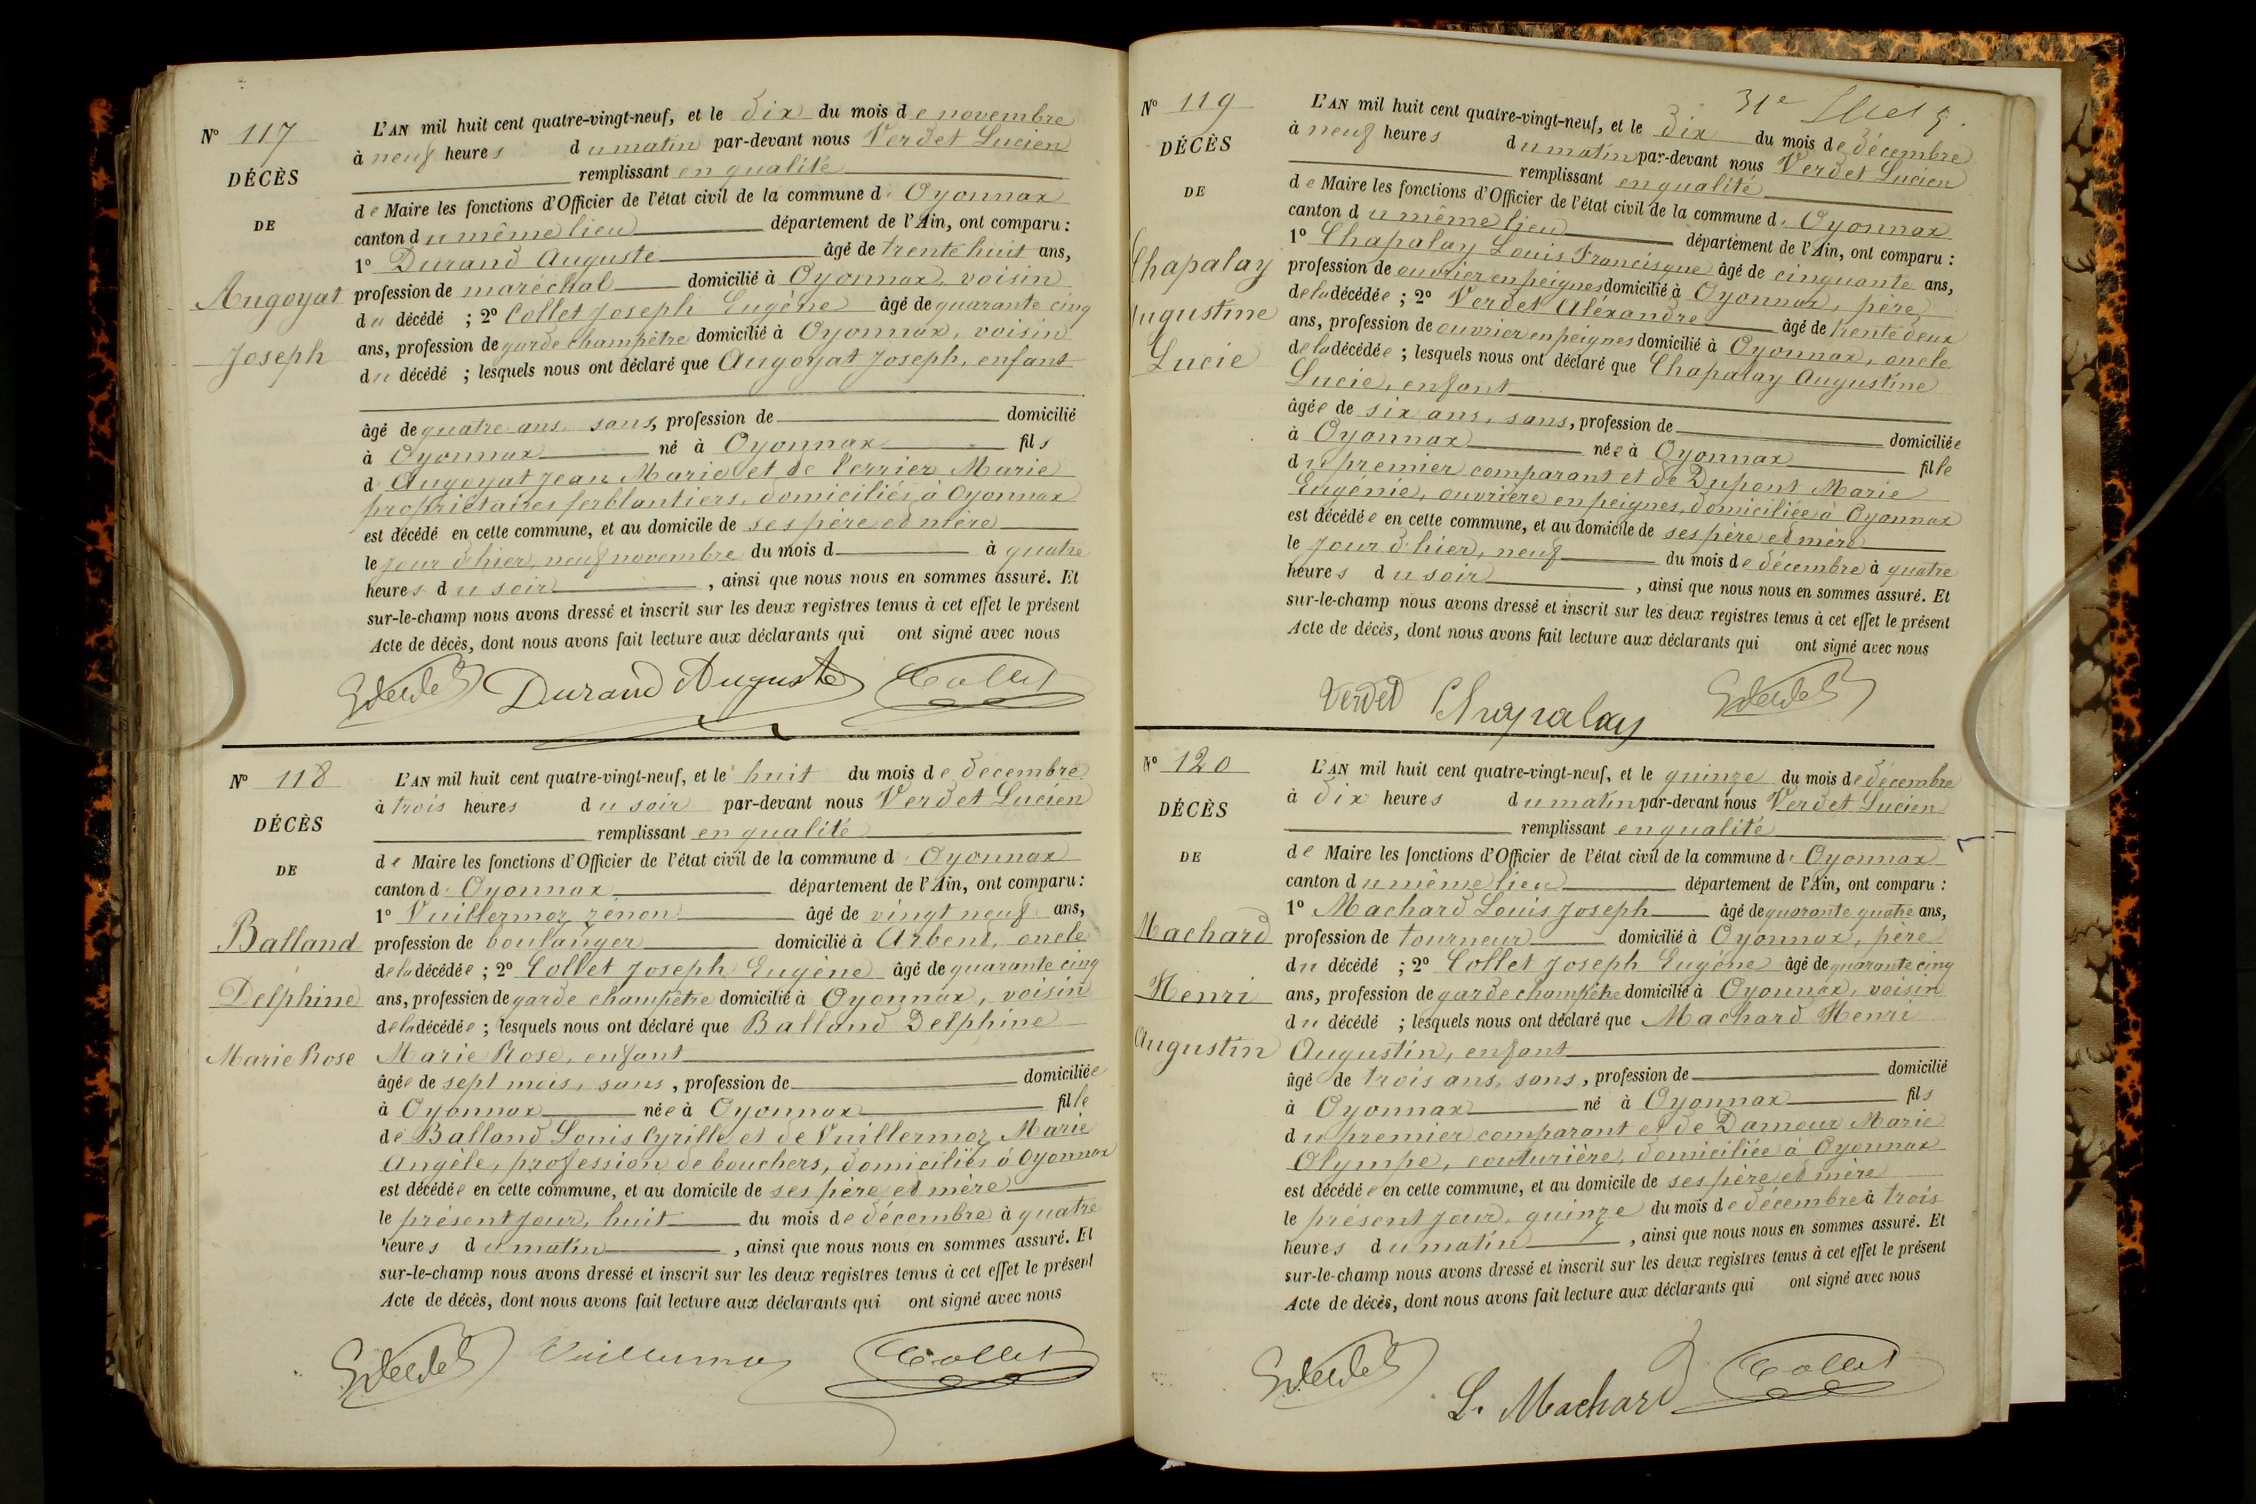 N° 117
DÉCÈS
DE
Augoyat
Joseph
L'AN mil huit cent quatre-vingt-neuf, et le dix du mois de novembre
à neuf heures du matin par-devant nous Verdet Lucien
remplissant en qualité
de Maire les fonctions d'Officier de l'état civil de la commune d'Oyonnax
canton du même lieu département de l'Ain, ont comparu :
1° Durand Auguste âgé de trente huit ans,
profession de maréchal domicilié à Oyonnax, voisin
du décédé ; 2° Collet Joseph Eugène âgé de quarante cinq
ans, profession de garde champêtre domicilié à Oyonnax, voisin
du décédé ; lesquels nous ont déclaré que Augoyat Joseph, enfant
âgé de quatre ans, sans, profession de domicilié
à Oyonnax né à Oyonnax fils
d'Augoyat Jean Marie et de Perrier Marie
propriétaires ferblantiers, domiciliés à Oyonnax
est décédé en cette commune, et au domicile de ses père et mère
le jour d'hier, neuf novembre du mois d à quatre
heures du soir , ainsi que nous nous en sommes assuré. Et
sur-le-champ nous avons dressé et inscrit sur les deux registres tenus à cet effet le présent
Acte de décès, dont nous avons fait lecture aux déclarants qui ont signé avec nous
Verdet Durand Auguste Collet
N° 118
DÉCÈS
DE
Balland
Delphine
Marie Rose
L'AN mil huit cent quatre-vingt-neuf, et le huit du mois de décembre
à trois heures du soir par-devant nous Verdet Lucien
remplissant en qualité
de Maire les fonctions d'Officier de l'état civil de la commune d'Oyonnax
canton d'Oyonnax département de l'Ain, ont comparu :
1° Vuillermoz Zénon âgé de vingt neuf ans,
profession de boulanger domicilié à Arbent, oncle
de la décédée ; 2° Collet Joseph Eugène âgé de quarante cinq
ans, profession de garde champêtre domicilié à Oyonnax, voisin
de la décédée ; lesquels nous ont déclaré que Balland Delphine
Marie Rose, enfant
âgée de sept mois, sans, profession de domiciliée
à Oyonnax née à Oyonnax fille
de Balland Louis Cyrille et de Vuillermoz Marie
Angèle, profession de bouchers, domiciliés à Oyonnax
est décédée en cette commune, et au domicile de ses père et mère
le présent jour, huit du mois de décembre à quatre
heures du matin , ainsi que nous nous en sommes assuré. Et
sur-le-champ nous avons dressé et inscrit sur les deux registres tenus à cet effet le présent
Acte de décès, dont nous avons fait lecture aux déclarants qui ont signé avec nous
Verdet Vuillermoz Collet
31e
N° 119
DÉCÈS
DE
Chapalay
Augustine
Lucie
L'AN mil huit cent quatre-vingt-neuf, et le dix du mois de décembre
à neuf heures du matin par-devant nous Verdet Lucien
remplissant en qualité
de Maire les fonctions d'Officier de l'état civil de la commune d'Oyonnax
canton du même lieu département de l'Ain, ont comparu :
1° Chapalay Louis Francisque âgé de cinquante ans,
profession de ouvrier en peignes domicilié à Oyonnax, père
de la décédée ; 2° Verdet Aléxandre âgé de trente deux
ans, profession de ouvrier en peignes domicilié à Oyonnax, oncle
de la décédée ; lesquels nous ont déclaré que Chapalay Augustine
Lucie, enfant
âgée de six ans, sans, profession de domiciliée
à Oyonnax née à Oyonnax fille
du premier comparant et de Dupont Marie
Eugénie, ouvrière en peignes, domiciliée à Oyonnax
est décédée en cette commune, et au domicile de ses père et mère
le jour d'hier, neuf du mois de décembre à quatre
heures du soir , ainsi que nous nous en sommes assuré. Et
sur-le-champ nous avons dressé et inscrit sur les deux registres tenus à cet effet le présent
Acte de décès, dont nous avons fait lecture aux déclarants qui ont signé avec nous
Verdet Chapalay Verdet
N° 120
DÉCÈS
DE
Machard
Henri
Augustin
L'AN mil huit cent quatre-vingt-neuf, et le quinze du mois de décembre
à dix heures du matin par-devant nous Verdet Lucien
remplissant en qualité
de Maire les fonctions d'Officier de l'état civil de la commune d'Oyonnax
canton du même lieu département de l'Ain, ont comparu :
1° Machard Louis Joseph âgé de quarante quatre ans,
profession de tourneur domicilié à Oyonnax, père
du décédé ; 2° Collet Joseph Eugène âgé de quarante cinq
ans, profession de garde champêtre domicilié à Oyonnax, voisin
du décédé ; lesquels nous ont déclaré que Machard Henri
Augustin, enfant
âgé de trois ans, sans, profession de domicilié
à Oyonnax né à Oyonnax fils
du premier comparant et de Damour Marie
Olympe, couturière, domiciliée à Oyonnax
est décédée en cette commune, et au domicile de ses père et mère
le présent jour, quinze du mois de décembre à trois
heures du matin , ainsi que nous nous en sommes assuré. Et
sur-le-champ nous avons dressé et inscrit sur les deux registres tenus à cet effet le présent
Acte de décès, dont nous avons fait lecture aux déclarants qui ont signé avec nous
Verdet L. Machard Collet